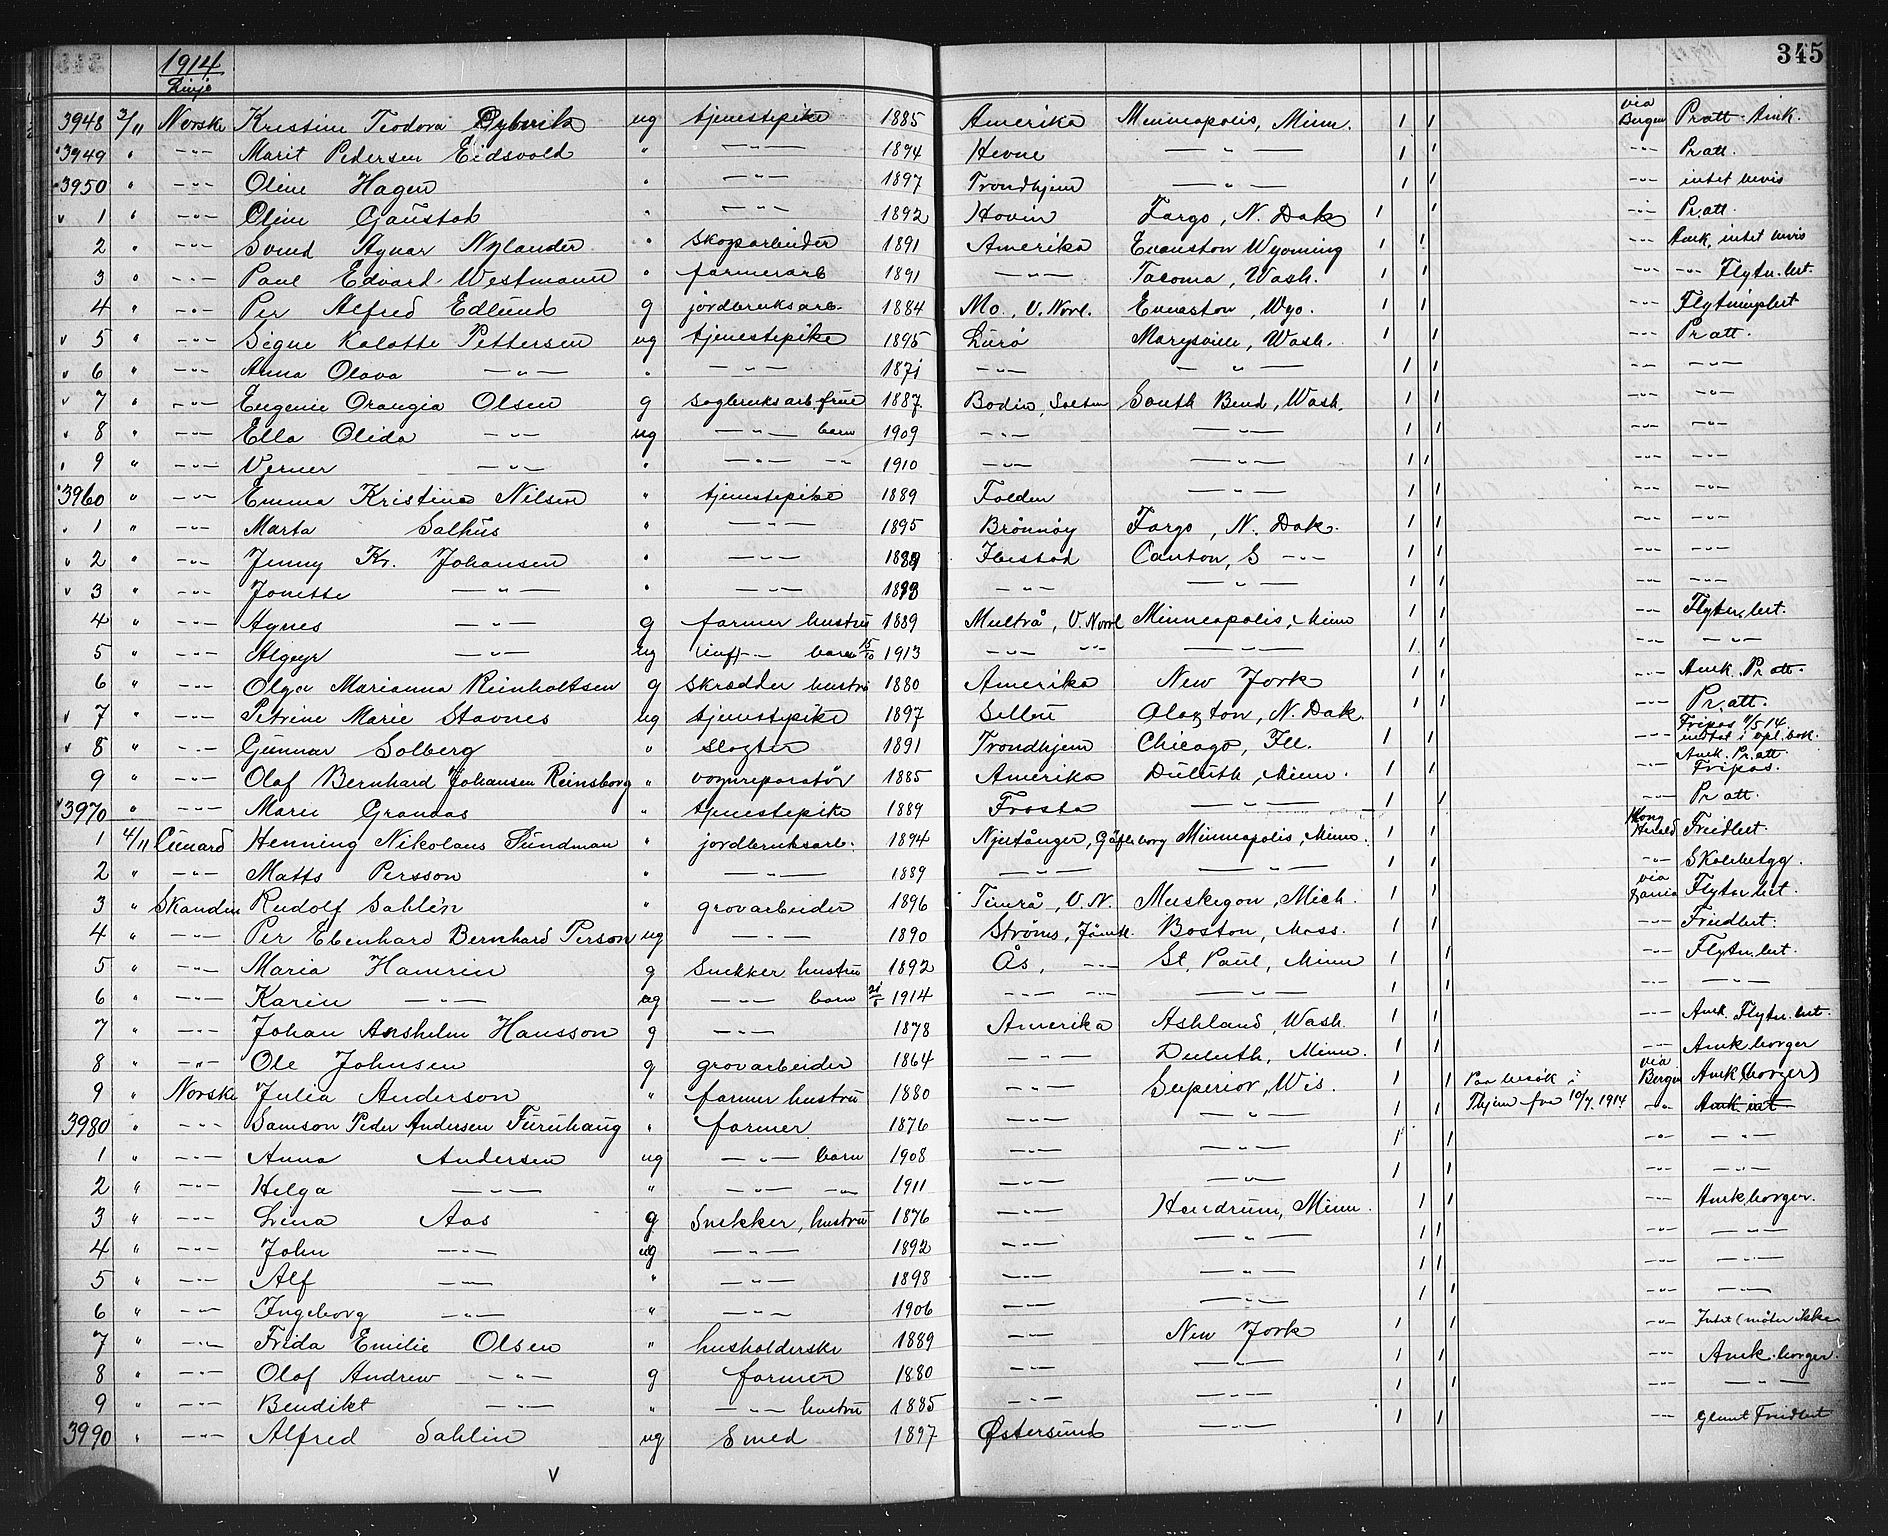 345
1914
Linje
3948 2/11 Norske Kristine Teodora ug tjenestepike 1885 Amerika Minneapolis, Minn. 1 1 via Bergen Pr att. Amk.
3949 " -"- Marit Pedersen Eidsvold " -"- 1894 Hevne -"- 1 1 -"- Pr att.
3950 " -"- Oline Hagen " 1897 Trondhjem -"- 1 1 -"- intet bevis
1 " -"- Oline Gaustad " -"- 1892 Hovin Fargo, N. Dak 1 1 -"- Pr att.
2 " -"- Svend Agnar Nylander " skogsarbeider 1891 Amerika Evanston Wyoming 1 1 -"- Amk, intet bevis
3 " -"- Paul Edvard Westmann " farmerarb 1891 -"- Tacoma, Wash. 1 1 -"- -"- Flytn. bet.
4 " -"- Per Alfred Edlund g jordbruksarb. 1884 Mo, V. Norrl. Evanston, Wyo. 1 1 -"-
5 " -"- Signe Kalotte Pettersen ug tjenestepike 1895 Lurö Marysville, Wash. 1 1 -"- Pr att.
6 " -"- Anna Olava -"- " -"- 1871 -"- -"- 1 1 -"- -"-
7 " -"- Eugenie Orangia Olsen g sagbruksarb. frue 1887 Bodin, Salten South Bend, Wash. 1 1 -"- -"-
8 " -"- Ella Olida -"- ug -"- barn 1909 -"- -"- 1 1 -"- -"-
9 " -"- Verner -"- " -"- -"- 1910 -"- -"- 1 1 -"- -"-
3960 " -"- Emma Kristine Nilsen " tjenestepike 1889 Folden -"- 1 1 -"- -"-
1 " -"- Marta Salhus " -"- 1895 Brønnøy Fargo, N. Dak. 1 1 -"- -"-
2 " -"- Jenny Kr. Johansen " -"- 1889 Canton, S -"- 1 1 -"- -"-
3 " -"- Jonette -"- " -"- 1893 -"- -"- 1 1 -"- -"-
4 " -"- Agnes -"- g farmer hustru 1889 Multrå, V. Norrl Minneapolis, Minn 1 1 -"- Flytn. bet.
5 " -"- -"- ug barn 15/10 1913 -"- -"- -"- 1 1 -"- -"-
6 " -"- Olga Marianna Reinholtsen g skrædder hustru 1880 Amerika New York 1 1 -"- Amk. Pr att.
7 " -"- Petrine Marie Stavnes ug tjenestepike 1897 N. Dak. 1 1 Pr. att.
8 " -"- Gunnar Solberg " slagter 1891 Trondhjem Chicago, Ill. 1 1 -"- Fripas 11/5 14. indtat i opl. bok.
9 " -"- Olaf Bernhard Johansen Reinsborg " vognreparatör 1885 Amerika Duluth, Minn. 1 1 -"- Amk. Pr. att Fripas.
3970 " -"- Maren Granaas " tjenestepike 1889 Frosta -"- 1 1 -"- Pr att.
1 4/11 Cunard Henning Nikolaus Sundman " jordbruksarb. 1894 Njutånger, Gäfleborg Minneapolis, Minn. 1 1 Kong Harald Fredbet.
2 " -"- Matts Persson " -"- 1889 -"- 1 1 -"- Skolebetyg.
3 " Skandin Rudolf Sahlén " grovarbeider 1896 Timrå, V. N. Muskegon, Mich. 1 1 via Flytn bet.
4 " -"- Per Ebenhard Bernhard Person ug -"- 1890 Ströms, Jämtl. Boston, Mass. 1 1 -"- Fredbet.
5 " -"- Maria Hamrin g snekker hustru 1892 Ås, -"- St. Paul, Minn 1 1 -"- Flytn. bet.
6 " -"- Karin -"- ug -"- barn 21/5 1914 -"- -"- -"- 1 1 -"- -"-
7 " -"- Johan Anshelm Hansson g -"- 1878 Amerika Ashland, Wash. 1 1 -"- Amk. Flytn. bet.
8 " -"- Ole Johnsen g grovarbeider 1864 -"- Duluth, Minn. 1 1 -"- Amk borger
9 " Norske Julia Anderson " farmer hustru 1880 -"- Superior, Wis. 1 1 Paa besök i via Bergen Amk (borger)
3980 " -"- Samson Peder Andersen Furuhaug " farmer 1876 -"- -"- 1 1 Thjem fra 10/7. 1914 -"- Amk. int
1 " -"- Anna Andersen ug -"- barn 1908 -"- -"- 1 1 -"- -"-
2 " -"- Helga -"- " -"- -"- 1911 -"- -"- 1 1 -"- -"-
3 " -"- Lena Aas g Snekker, hustru 1876 -"- Hendrum, Minn. 1 1 -"- Amk borger.
4 " -"- John -"- ug -"- 1892 -"- -"- 1 1 -"- -"-
5 " -"- Alf -"- " -"- 1898 -"- -"- 1 1 -"- -"-
6 " -"- Ingeborg -"- " -"- 1906 -"- -"- 1 1 -"- -"-
7 " -"- Frida Emilie Olsen " husholderske 1889 -"- New York 1 1 -"- Intet (møter ikke
8 " -"- Olaf Andrew -"- g farmer 1880 -"- -"- 1 1 -"- Amk. borger.
9 " -"- Bendikt -"- " -"- hustru 1885 -"- -"- 1 1 -"- -"-
3990 " -"- Alfred Sahlin ug Smed 1897 Østersund -"- 1 1 -"- glemt Fredbet
v